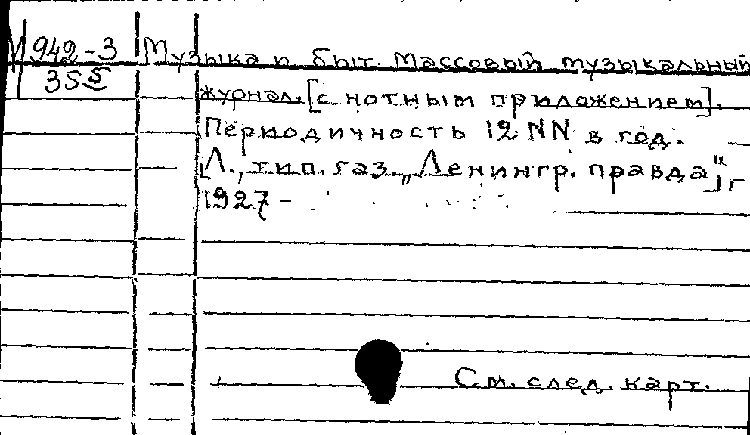 М 942-3 Музыка и быт. Массовый музыкальный
355 журнал. [с нотным приложением].
Периодичность 12 NN в год.
[Л., тип. газ. „Ленингр. правда"],
1927 -
См. след. карт.